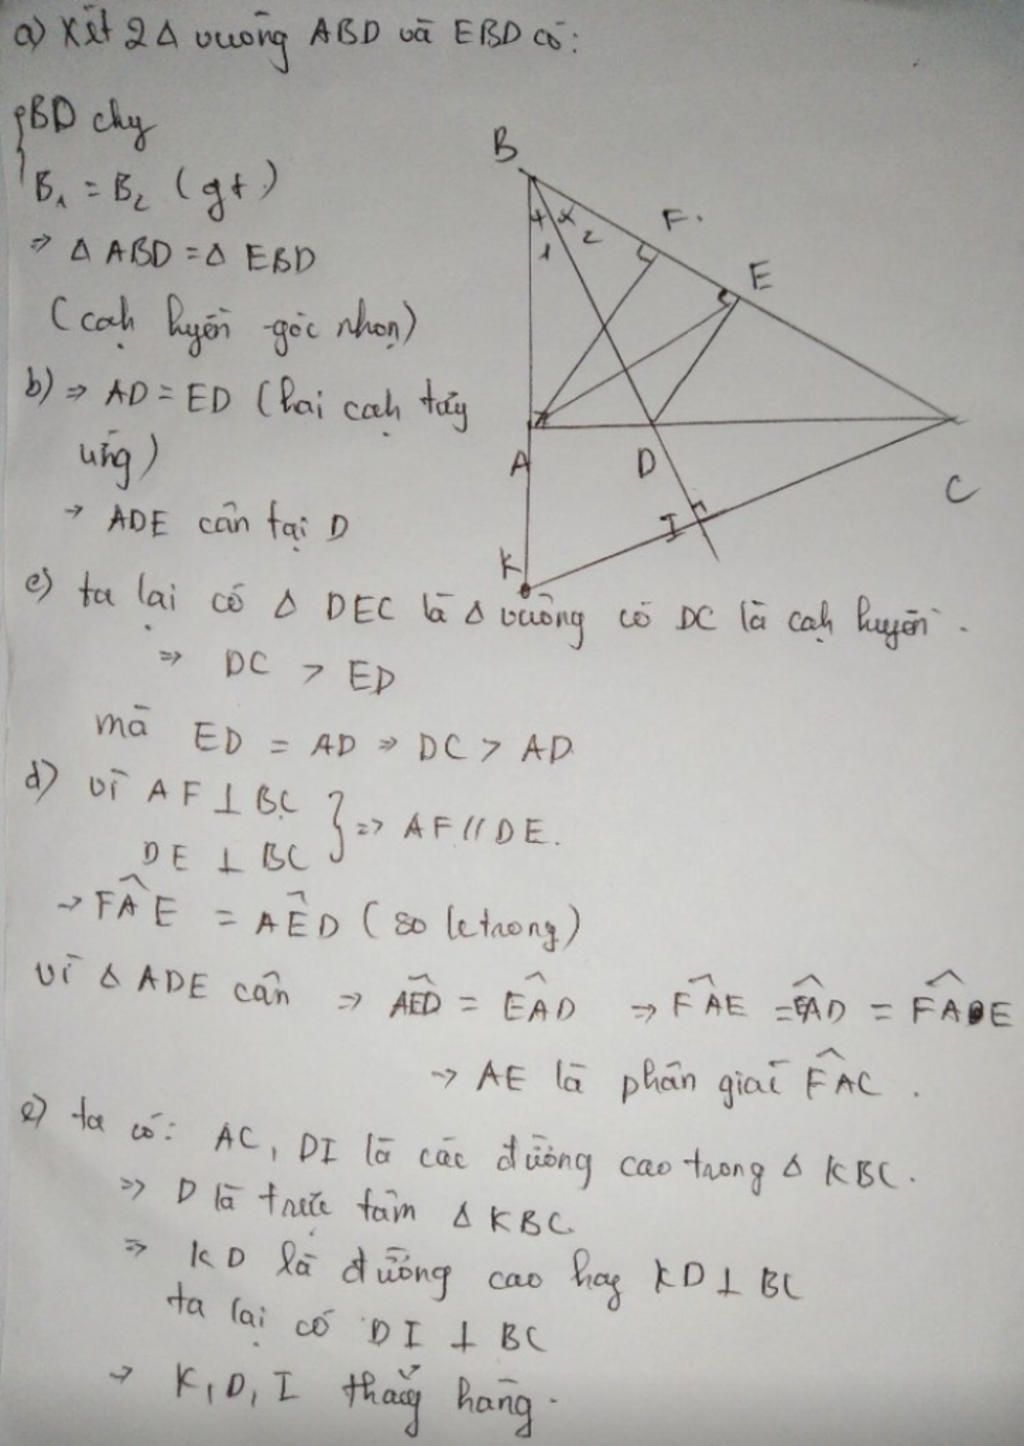 a) Xét 2 Δ vuông ABD và EBD có:
{BD chg
B₁ = B₂ (gt)
⇒ Δ ABD = Δ EBD
(cạh hyền - góc nhọn)
b) ⇒ AD = ED (hai cạh tưg
ứng)
→ ADE cân tại D
c) ta lại có Δ DEC là Δ vuông có DC là cạh huyền.
⇒ DC > ED
mà ED = AD ⇒ DC > AD
d) vì AF ⊥ BC
DE ⊥ BC } ⇒ AF // DE.
→ FÂE = AÊD (so le trong)
vì Δ ADE cân ⇒ AÊD = EÂD ⇒ FÂE = EÂD = FADE
→ AE là phân giai FÂC.
e) ta có: AC, DI là các đường cao trong Δ KBC.
⇒ D là trực tâm Δ KBC
⇒ KD là đường cao hay KD ⊥ BC
ta lại có DI ⊥ BC
→ K, D, I thẳng hàng.
B
1
2
F.
E
A
D
C
K
I